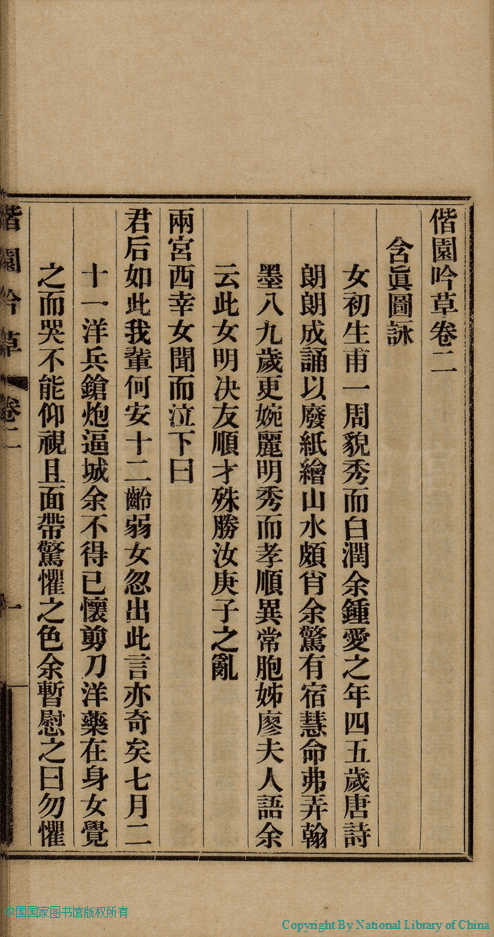 偕園吟草卷二
含眞圖詠
女初生甫一周貌秀而白潤余鍾愛之年四五歲唐詩
朗朗成誦以廢紙繪山水頗肖余驚有宿慧命弗弄翰
墨八九歲更婉麗明秀而孝順異常胞姊廖夫人語余
云此女明决友順才殊勝汝庚子之亂
兩宮西幸女聞而泣下曰
君后如此我輩何安十二齡弱女忽出此言亦奇矣七月二
十一洋兵鎗炮逼城余不得已懷剪刀洋藥在身女覺
之而哭不能仰視且面帶驚懼之色余暫慰之曰勿懼
偕園吟草 卷二 一
中国国家图书馆版权所有
Copyright By National Library of China